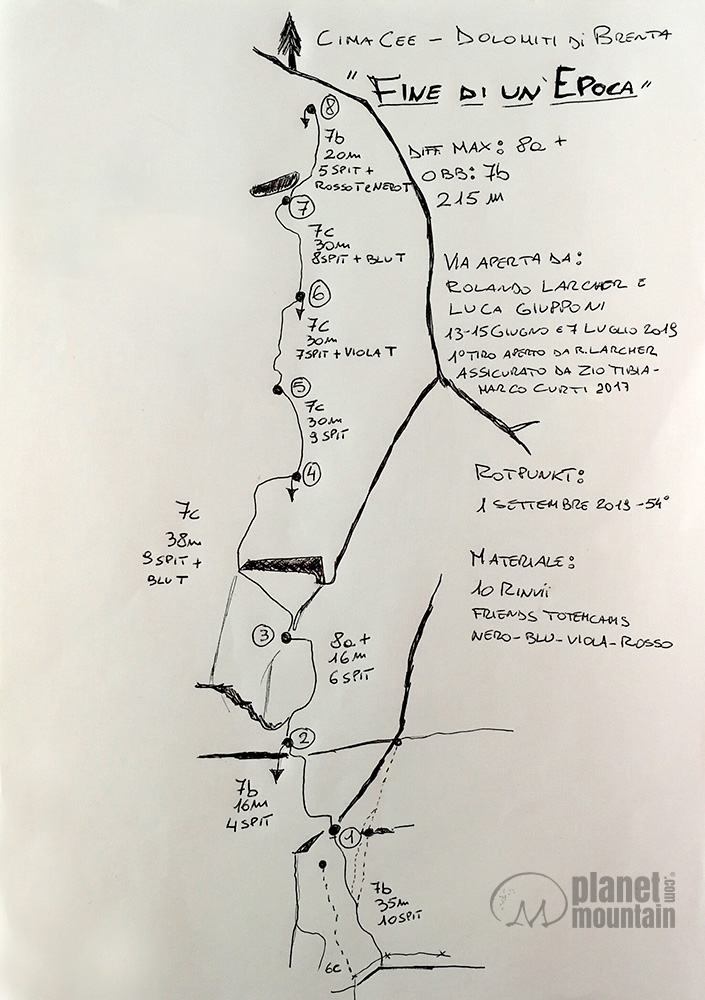 CIMA CEE - DOLOMITI DI BRENTA
"FINE DI UN'EPOCA"
8
7b
20m
5 SPIT +
ROSSO T e NERO T
DIFF. MAX: 8a+
OBB: 7b
215 m
7
7c
30m
8 SPIT + BLU T
VIA APERTA DA:
ROLANDO LARCHER E
LUCA GIUPPONI
13-15 GIUGNO E 7 LUGLIO 2019
1° TIRO APERTO DA R. LARCHER
ASSICURATO DA ZIO TIBIA-
MARCO CURTI 2017
6
7c
30m
7 SPIT + VIOLA T
5
7c
30m
9 SPIT
4
ROTPUNKT:
1 SETTEMBRE 2019 - 54°
7c
38m
9 SPIT +
BLU T
MATERIALE:
10 RINVII
FRIENDS TOTEMCAMS
NERO-BLU-VIOLA-ROSSO
3
8a+
16m
6 SPIT
2
7b
16m
4 SPIT
1
7b
35m
10 SPIT
6c
planet
mountain
.com